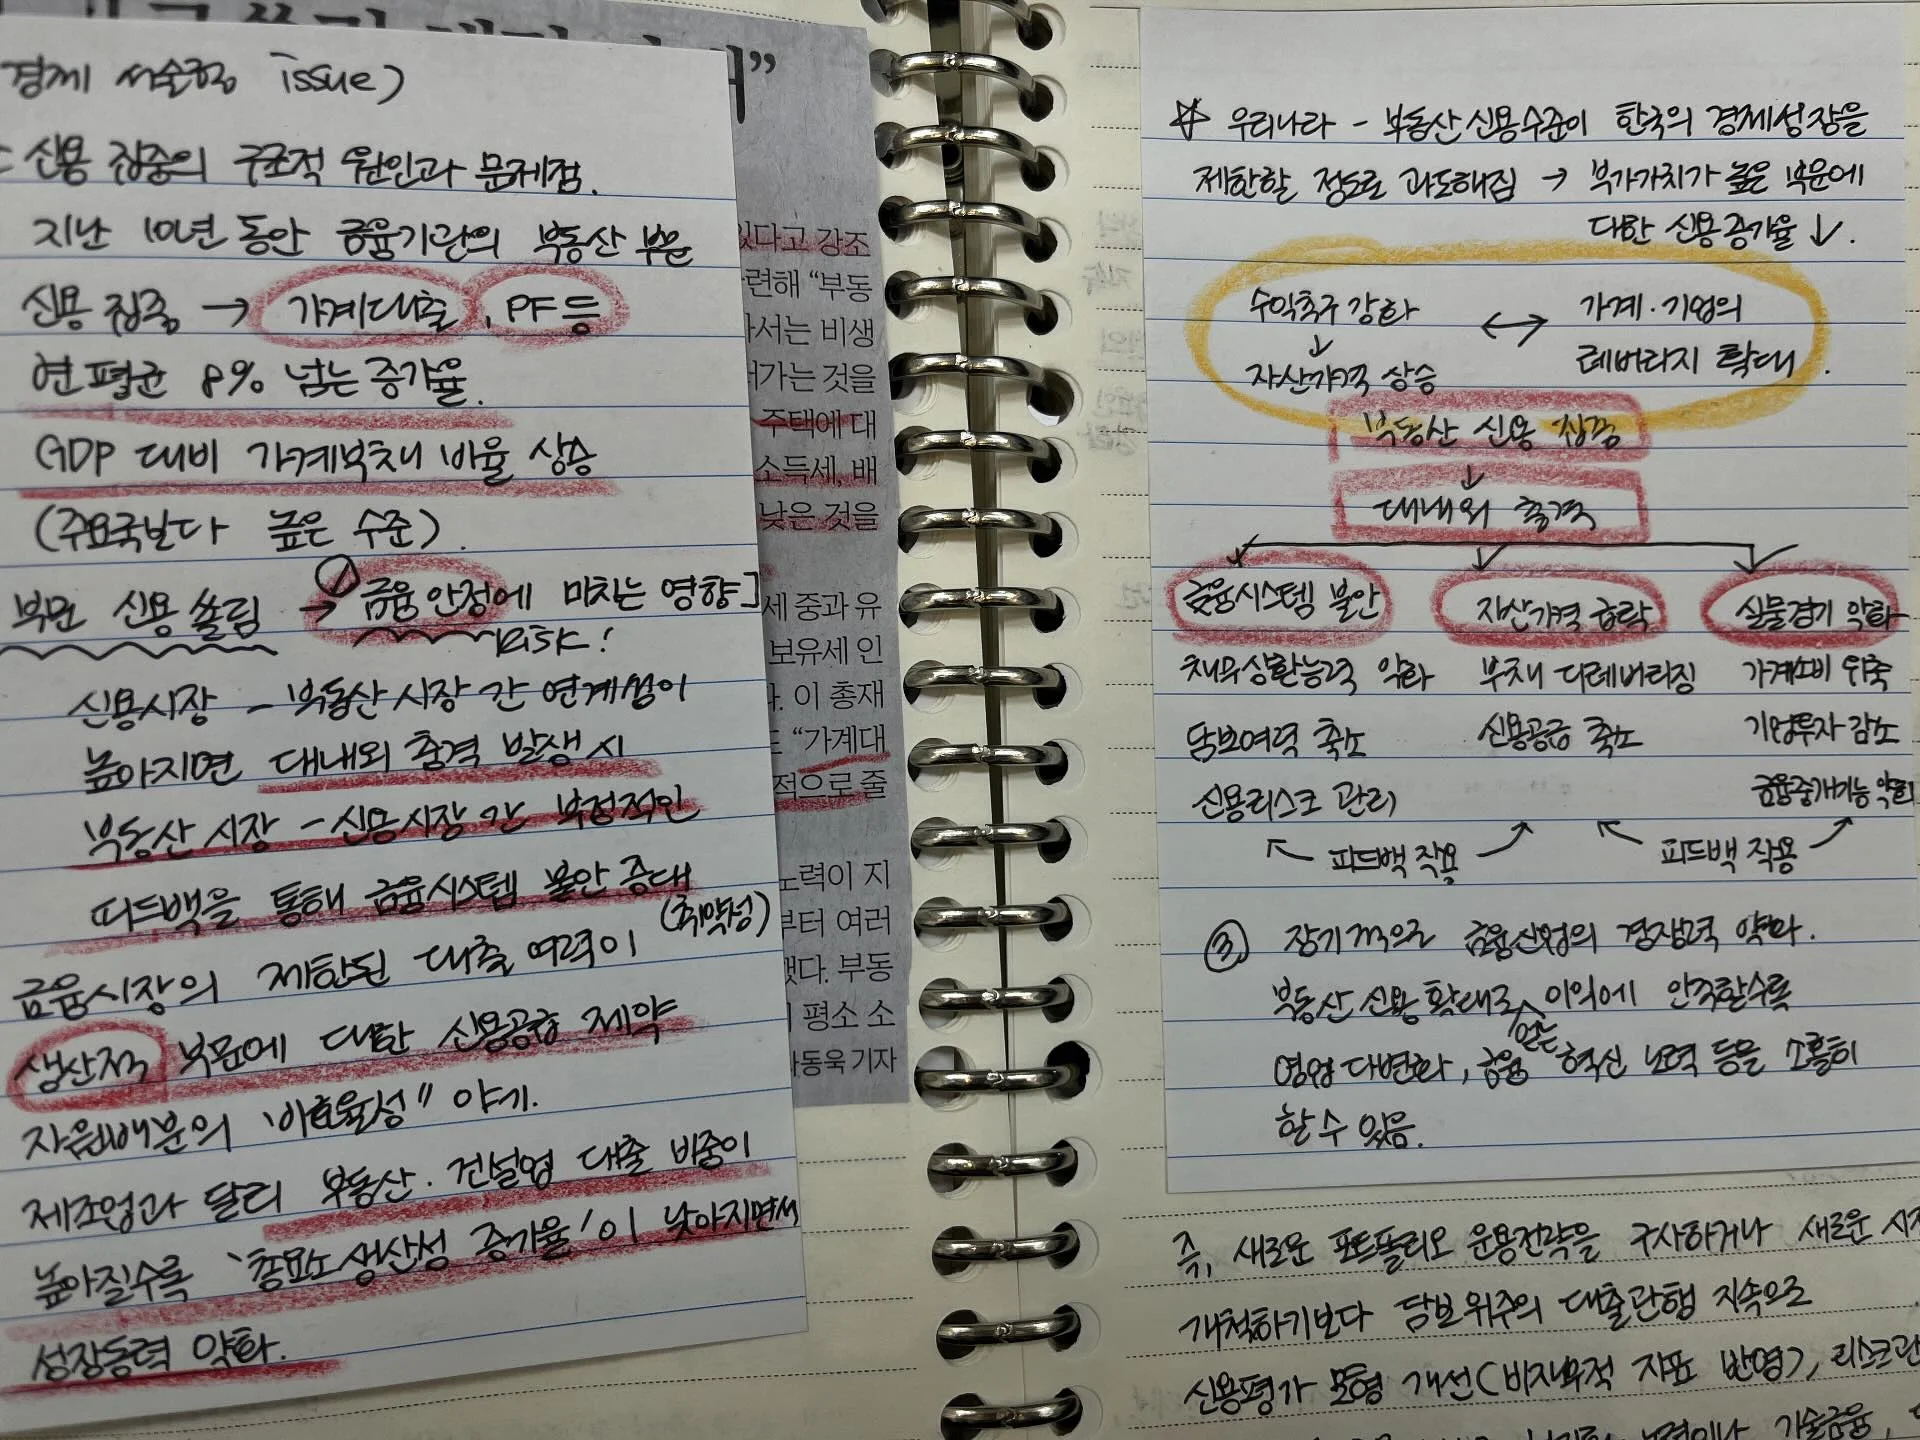 경제 서술형 issue)
신용 집중의 구조적 원인과 문제점.
지난 10년 동안 금융기관의 부동산 부문
신용 집중 → 가계대출, PF 등
연 평균 8% 넘는 증가율.
GDP 대비 가계부채 비율 상승
(주요국보다 높은 수준).
부문 신용 쏠림 → ① 금융 안정에 미치는 영향]
RISK!
신용시장 - 부동산 시장 간 연계성이
높아지면 대내외 충격 발생 시
부동산 시장 - 신용시장 간 부정적인
피드백을 통해 금융시스템 불안 증대
(취약성)
금융시장의 제한된 대출 여력이
생산적 부문에 대한 신용공급 제약
자원배분의 '비효율성" 야기.
제조업과 달리 부동산·건설업 대출 비중이
높아질수록 '총요소 생산성 증가율'이 낮아지면서
성장동력 약화.
있다고 강조
련해 “부동
서는 비생
가는 것을
주택에 대
소득세, 배
낮은 것을
세 중과 유
보유세 인
. 이 총재
“가계대
적으로 줄
노력이 지
부터 여러
했다. 부동
평소 소
동욱 기자
☆ 우리나라 - 부동산 신용수준이 한국의 경제성장을
제한할 정도로 과도해짐 → 부가가치가 높은 부문에
대한 신용증가율 ↓.
수익추구 강화 ↔ 가계·기업의
↓ 레버리지 확대.
자산가격 상승
부동산 신용 집중
↓
대내외 충격
금융시스템 불안 자산가격 급락 실물경기 악화
채무상환능력 악화 부채 디레버리징 가계소비 위축
담보여력 축소 신용공급 축소 기업투자 감소
신용리스크 관리 금융중개기능 약화
피드백 작용 피드백 작용
③ 장기적으로 금융산업의 경쟁력 약화.
부동산 신용 확대로 얻는 이익에 안주할수록
영업 다변화, 금융 혁신 노력 등을 소홀히
할 수 있음.
즉, 새로운 포트폴리오 운용전략을 구사하거나 새로운 시
개척하기보다 담보 위주의 대출관행 지속으로
신용평가 모형 개선(비재무적 지표 반영), 리스크관
노력이나 기술금융,